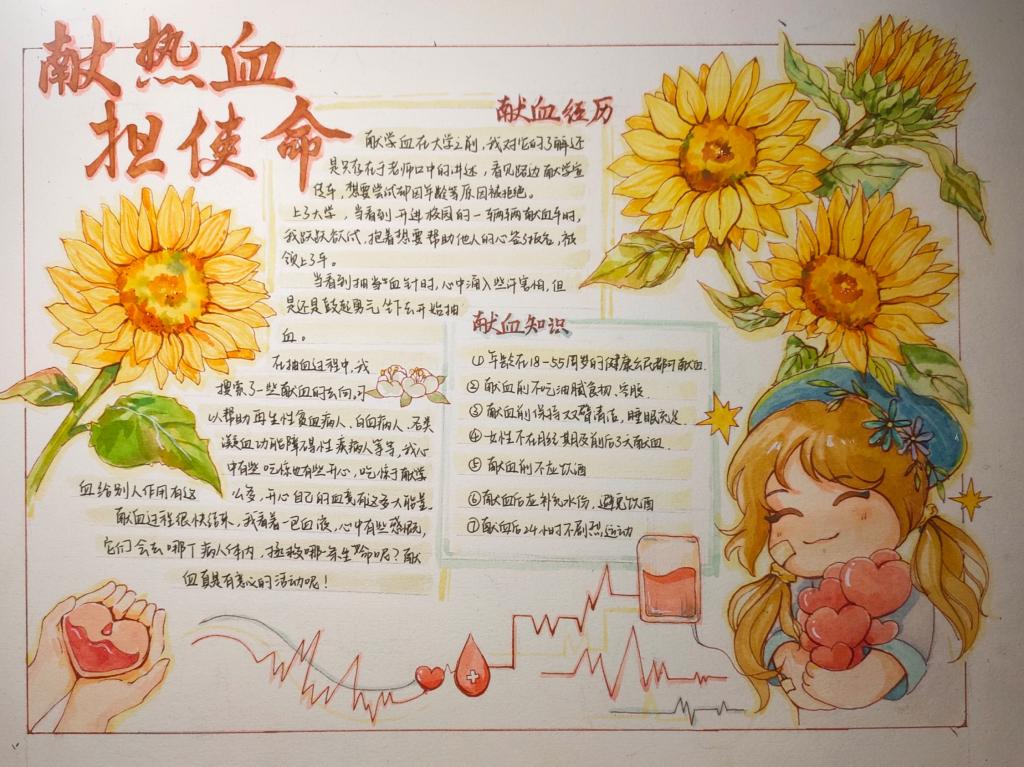 献热血
担使命
献血经历
献学血在大学之前,我对它的了解还
是只存在于老师口中的讲述,看见路边献学宣
传车,想要尝试却因年龄等原因被拒绝。
上了大学,当看到开进校园的一辆辆献血车时,
我跃跃欲试,抱着想要帮助他人的心签了报名,被
领上了车。
当看到抽当血针时,心中涌入些许害怕,但
是还是鼓起勇气坐下去开始抽
血。
在抽血过程中,我
搜索了一些献血的去向,可
以帮助再生性贫血病人、白血病人、各类
凝血功能障碍性疾病人等等,我心
中有些吃惊也有些开心,吃惊于献学
么多,开心自己的血竟有这多大能量
血给别人作用有这
献血过程很快结束,我看着一包血液,心中有些感慨,
它们会去哪个病人体内,拯救哪一条生命呢?献
血真是有意心的活动呢!
献血知识
①年龄在18-55周岁的健康公民都可献血.
②献血前不吃油腻食物、空腹.
③献血前保持双臂清洁,睡眠充足
④女性不在月经期及前后3天献血
⑤献血前不应饮酒
⑥献血后应补充水份,避免饮酒
⑦献血后24小时不剧烈运动